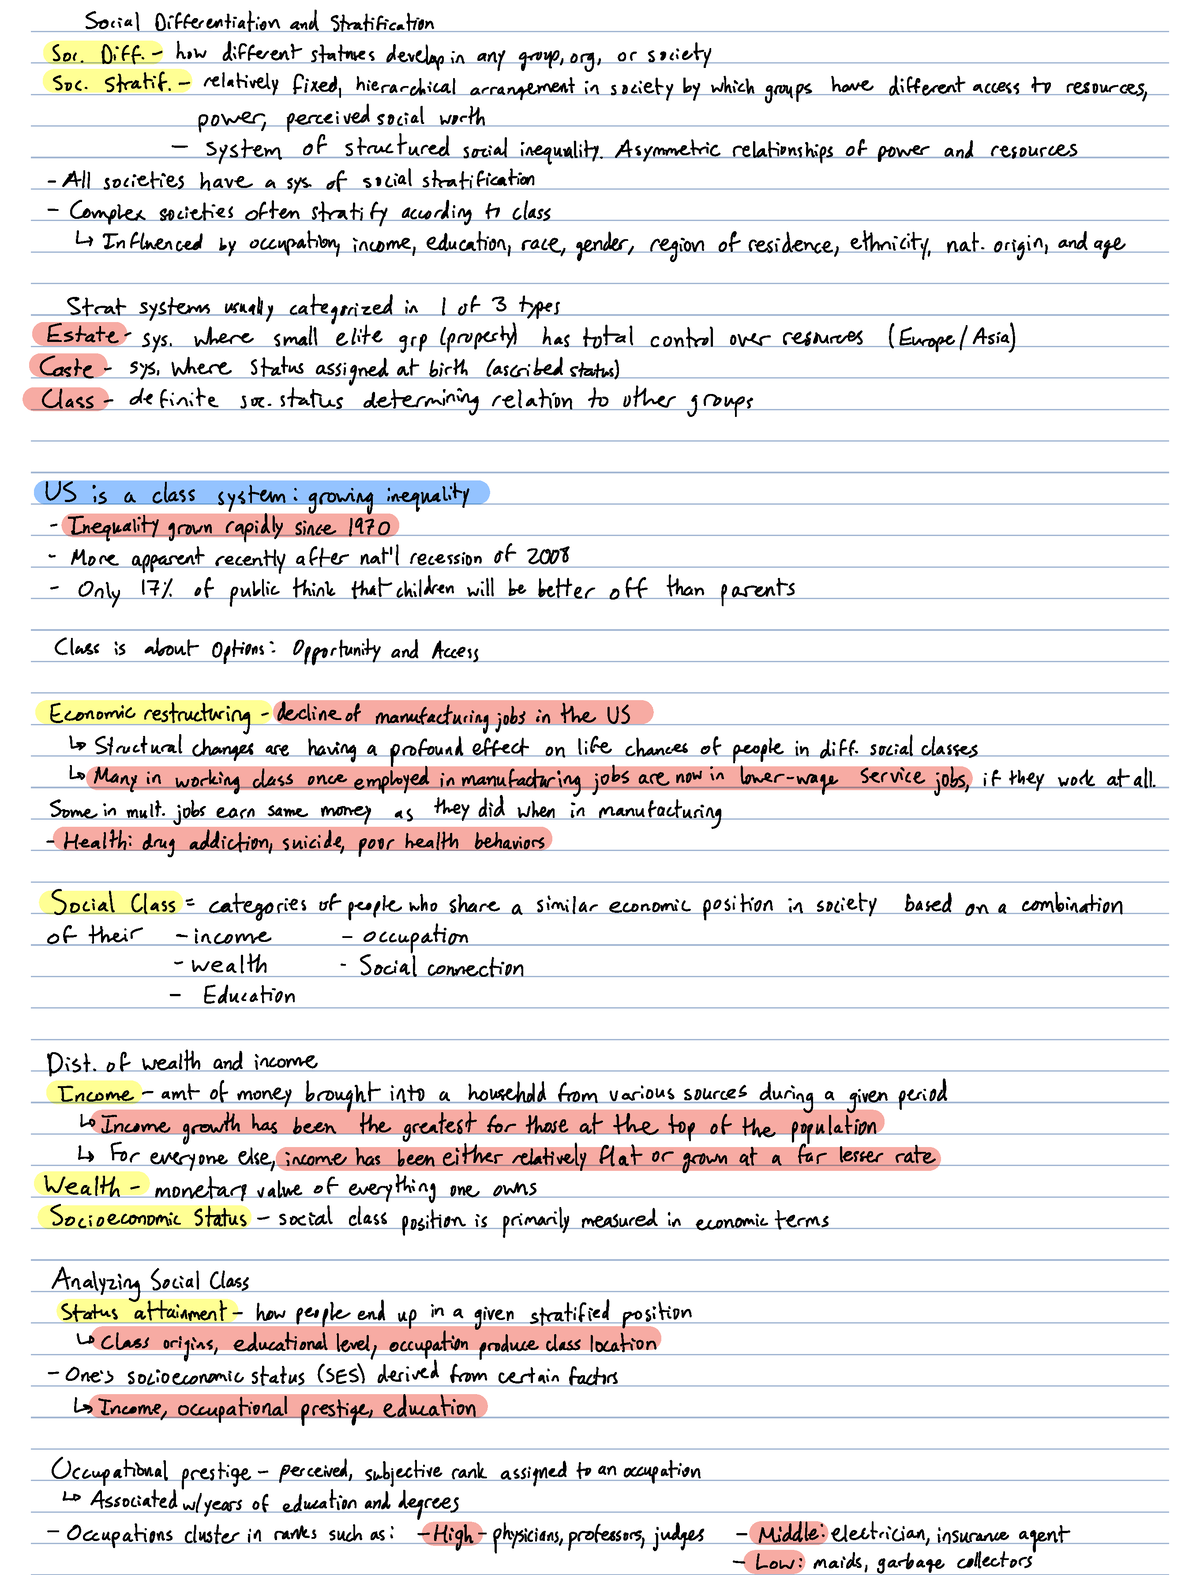 Social Differentiation and Stratification
Soc. Diff. - how different statuses develop in any group, org, or society
Soc. Stratif. - relatively fixed, hierarchical arrangement in society by which groups have different access to resources,
power, perceived social worth
- System of structured social inequality. Asymmetric relationships of power and resources
- All societies have a sys. of social stratification
- Complex societies often stratify according to class
↳ Influenced by occupation, income, education, race, gender, region of residence, ethnicity, nat. origin, and age
Strat systems usually categorized in 1 of 3 types
Estate - sys. where small elite grp (property) has total control over resources (Europe/Asia)
Caste - sys. where status assigned at birth (ascribed status)
Class - definite soc. status determining relation to other groups
US is a class system: growing inequality
- Inequality grown rapidly since 1970
- More apparent recently after nat'l recession of 2008
- Only 17% of public think that children will be better off than parents
Class is about Options: Opportunity and Access
Economic restructuring - decline of manufacturing jobs in the US
↳ Structural changes are having a profound effect on life chances of people in diff. social classes
↳ Many in working class once employed in manufacturing jobs are now in lower-wage service jobs, if they work at all.
Some in mult. jobs earn same money as they did when in manufacturing
- Health: drug addiction, suicide, poor health behaviors
Social Class = categories of people who share a similar economic position in society based on a combination
of their - income - occupation
- wealth - Social connection
- Education
Dist. of wealth and income
Income - amt of money brought into a household from various sources during a given period
↳ Income growth has been the greatest for those at the top of the population
↳ For everyone else, income has been either relatively flat or grown at a far lesser rate
Wealth - monetary value of everything one owns
Socioeconomic Status - social class position is primarily measured in economic terms
Analyzing Social Class
Status attainment - how people end up in a given stratified position
↳ Class origins, educational level, occupation produce class location
- One's socioeconomic status (SES) derived from certain factors
↳ Income, occupational prestige, education
Occupational prestige - perceived, subjective rank assigned to an occupation
↳ Associated w/years of education and degrees
- Occupations cluster in ranks such as: - High - physicians, professors, judges - Middle: electrician, insurance agent
- Low: maids, garbage collectors